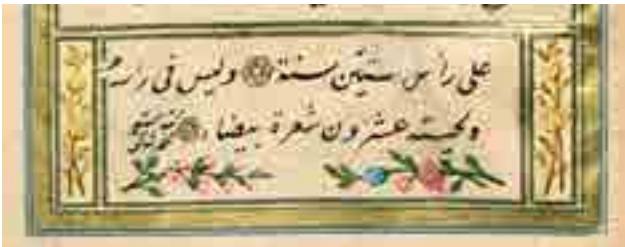 على رأس ستين سنة وليس في رأسه
ولحيته عشرون شعرة بيضاء